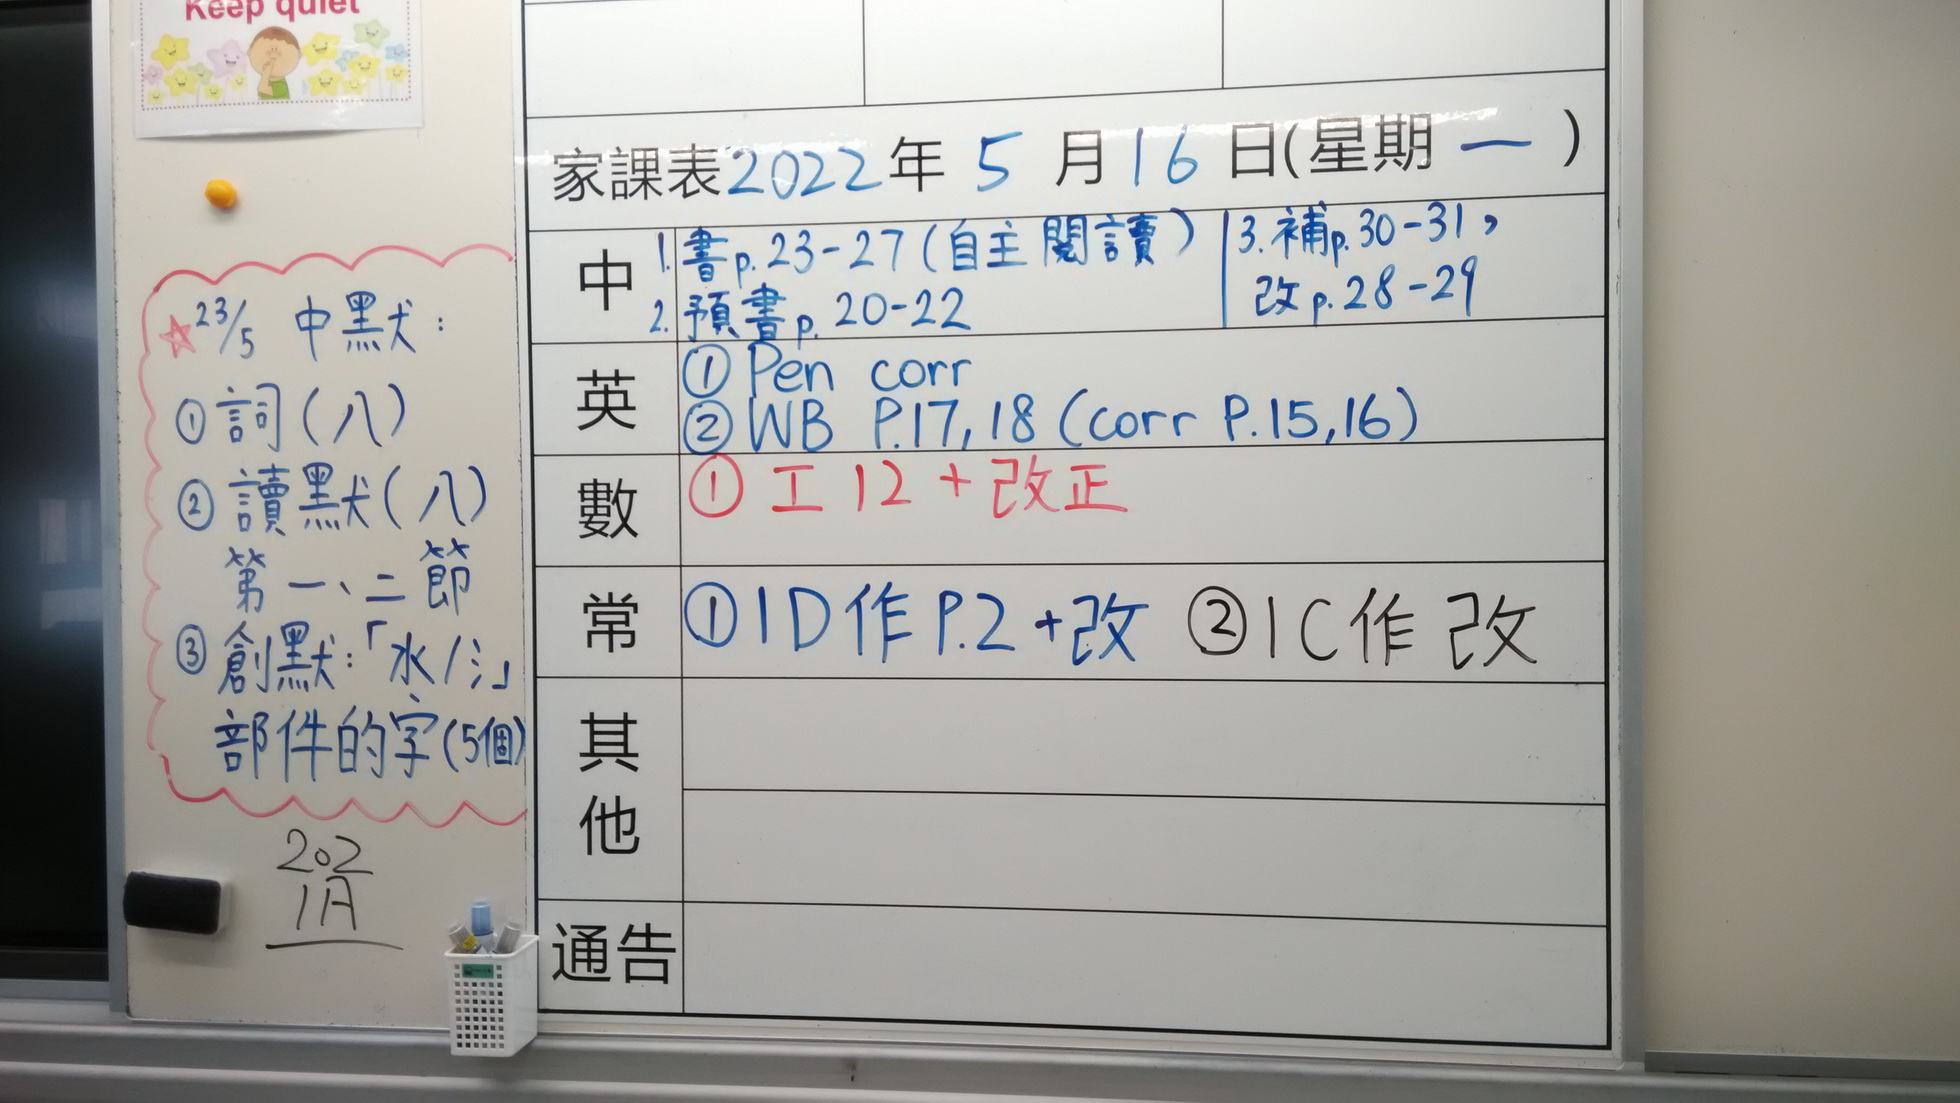 Keep quiet
家課表2022年 5 月16 日(星期 一 )
中
1. 書p.23-27(自主閱讀)
2. 預書p. 20-22
3. 補p.30-31,
改p.28-29
英
① Pen corr
② WB P.17,18 (corr P.15,16)
數
① 工12 + 改正
常
①1D作P.2+改 ②1C作改
其他
通告
☆23/5 中默:
①詞(八)
②讀默(八)
第一、二節
③創默:「水/氵」
部件的字(5個)
202
1A